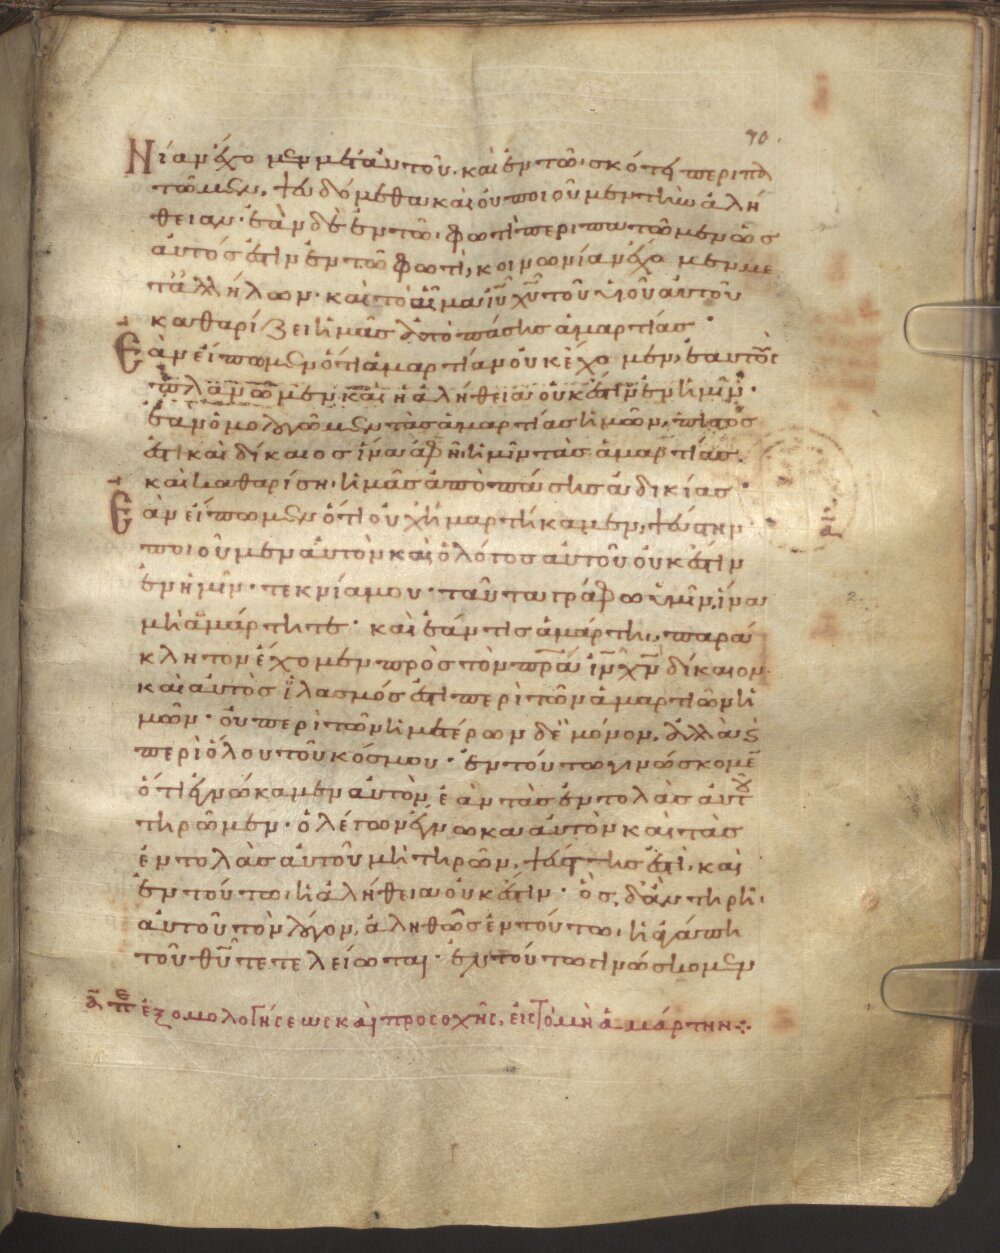 70.
Νίαν ἔχομεν μετ αὐτοῦ. καὶ ἐν τῶ σκότει περιπα
τῶμεν, ψευδόμεθα καὶ οὐ ποιοῦμεν τὴν ἀλή
θειαν· ἐὰν δὲ ἐν τῶ φωτὶ περιπατῶμεν ὡς
αὐτός ἐστιν ἐν τῶ φωτὶ, κοινωνίαν ἔχομεν με
τ ἀλλήλων· καὶ τὸ αἷμα ἰυ χυ τοῦ υἱοῦ αὐτοῦ
καθαρίζει ἡμᾶς ἀπὸ πάσης ἁμαρτίας·
Ἐὰν εἴπωμεν ὅτι ἁμαρτίαν οὐκ ἔχομεν, ἑαυτοὺς
πλανῶμεν καὶ ἡ ἀλήθεια οὐκ ἔστιν ἐν ἡμῖν·
ἐὰν ὁμολογῶμεν τὰς ἁμαρτίας ἡμῶν, πιστός
ἐστι καὶ δίκαιος ἵνα ἀφῆ ἡμῖν τὰς ἁμαρτίας.
καὶ καθαρίση ἡμᾶς ἀπὸ πάσης ἀδικίας·
Ἐὰν εἴπωμεν ὅτι οὐχ ἡμαρτήκαμεν, ψεύστην
ποιοῦμεν αὐτὸν καὶ ὁ λόγος αὐτοῦ οὐκ ἔστιν
ἐν ἡμῖν· τεκνία μου· ταῦτα γράφω ὑμῖν, ἵνα
μὴ ἁμάρτητε· καὶ ἐάν τις ἁμάρτη, παρά
κλητον ἔχομεν πρὸς τὸν πρα ἰν χν δίκαιον.
καὶ αὐτὸς ἱλασμός ἐστι περὶ τῶν ἁμαρτιῶν ἡ
μῶν· οὐ περὶ τῶν ἡμετέρων δὲ μόνον, ἀλλὰ ϗ
περὶ ὅλου τοῦ κόσμου· ἐν τούτω γινώσκομε
ὅτι ἐγνώκαμεν αὐτὸν, ἐὰν τὰς ἐντολὰς αὐτοῦ
τηρῶμεν· ὁ λέγων ἔγνωκα αὐτὸν καὶ τὰς
ἐντολὰς αὐτοῦ μὴ τηρῶν, ψεύστης ἐστὶ, καὶ
ἐν τούτω ἡ ἀλήθεια οὐκ ἔστιν· ὃς δ ἂν τηρῆ
αὐτοῦ τὸν λόγον, ἀληθῶς ἐν τούτω ἡ ἀγάπη
τοῦ θυ τετελείωται· ἐν τούτω γινώσκομεν
ἐξομολογήσεως καὶ προσοχῆς, εἰς τὸ μὴ ἁμάρτην